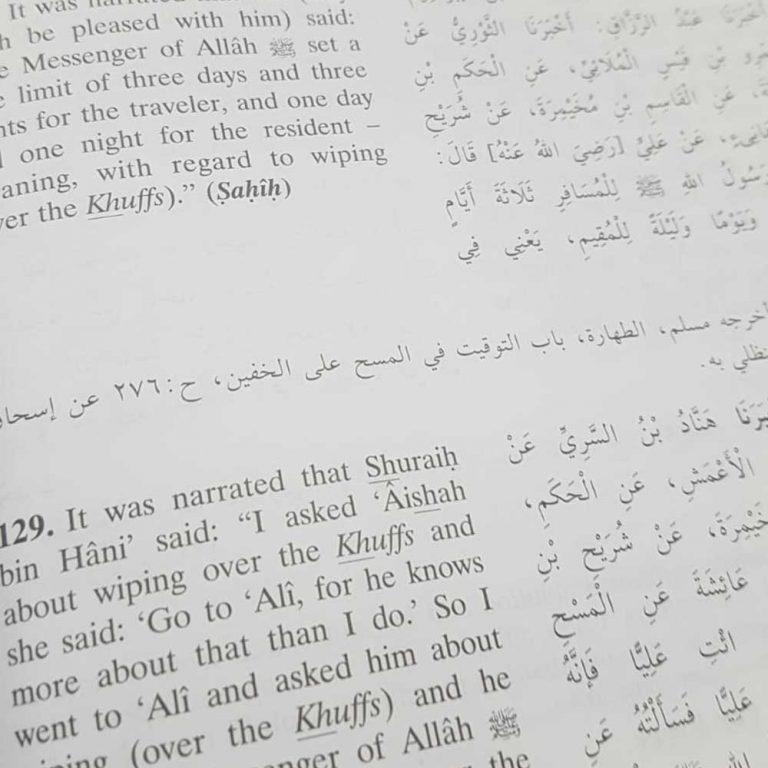 It was narrated
be pleased with him) said:
Messenger of Allâh ﷺ set a
limit of three days and three
for the traveler, and one day
one night for the resident –
with regard to wiping
the Khuffs).” (Ṣaḥîḥ)
أَخْبَرَنَا عَبْدُ الرَّزَّاقِ: أَخْبَرَنَا الثَّوْرِيُّ عَنْ
بْنِ قَيْسٍ الْمُلَائِيِّ، عَنِ الْحَكَمِ بْنِ
عَنِ الْقَاسِمِ بْنِ مُخَيْمِرَةَ، عَنْ شُرَيْحِ
عَنْ عَلِيٍّ [رَضِيَ اللهُ عَنْهُ] قَالَ:
رَسُولُ اللهِ ﷺ لِلْمُسَافِرِ ثَلَاثَةَ أَيَّامٍ
وَيَوْمًا وَلَيْلَةً لِلْمُقِيمِ، يَعْنِي فِي
أخرجه مسلم، الطهارة، باب التوقيت في المسح على الخفين، ح: ٢٧٦ عن
به.
129. It was narrated that Shuraiḥ
bin Hâni’ said: “I asked ‘Âishah
about wiping over the Khuffs and
she said: ‘Go to ‘Alî, for he knows
more about that than I do.’ So I
went to ‘Alî and asked him about
(over the Khuffs) and he
of Allâh ﷺ
the
هَنَّادُ بْنُ السَّرِيِّ عَنْ
الْأَعْمَشِ، عَنِ الْحَكَمِ،
عَنْ شُرَيْحِ بْنِ
عَائِشَةَ عَنِ الْمَسْحِ
ائْتِ عَلِيًّا فَإِنَّهُ
عَلِيًّا فَسَأَلْتُهُ عَنِ